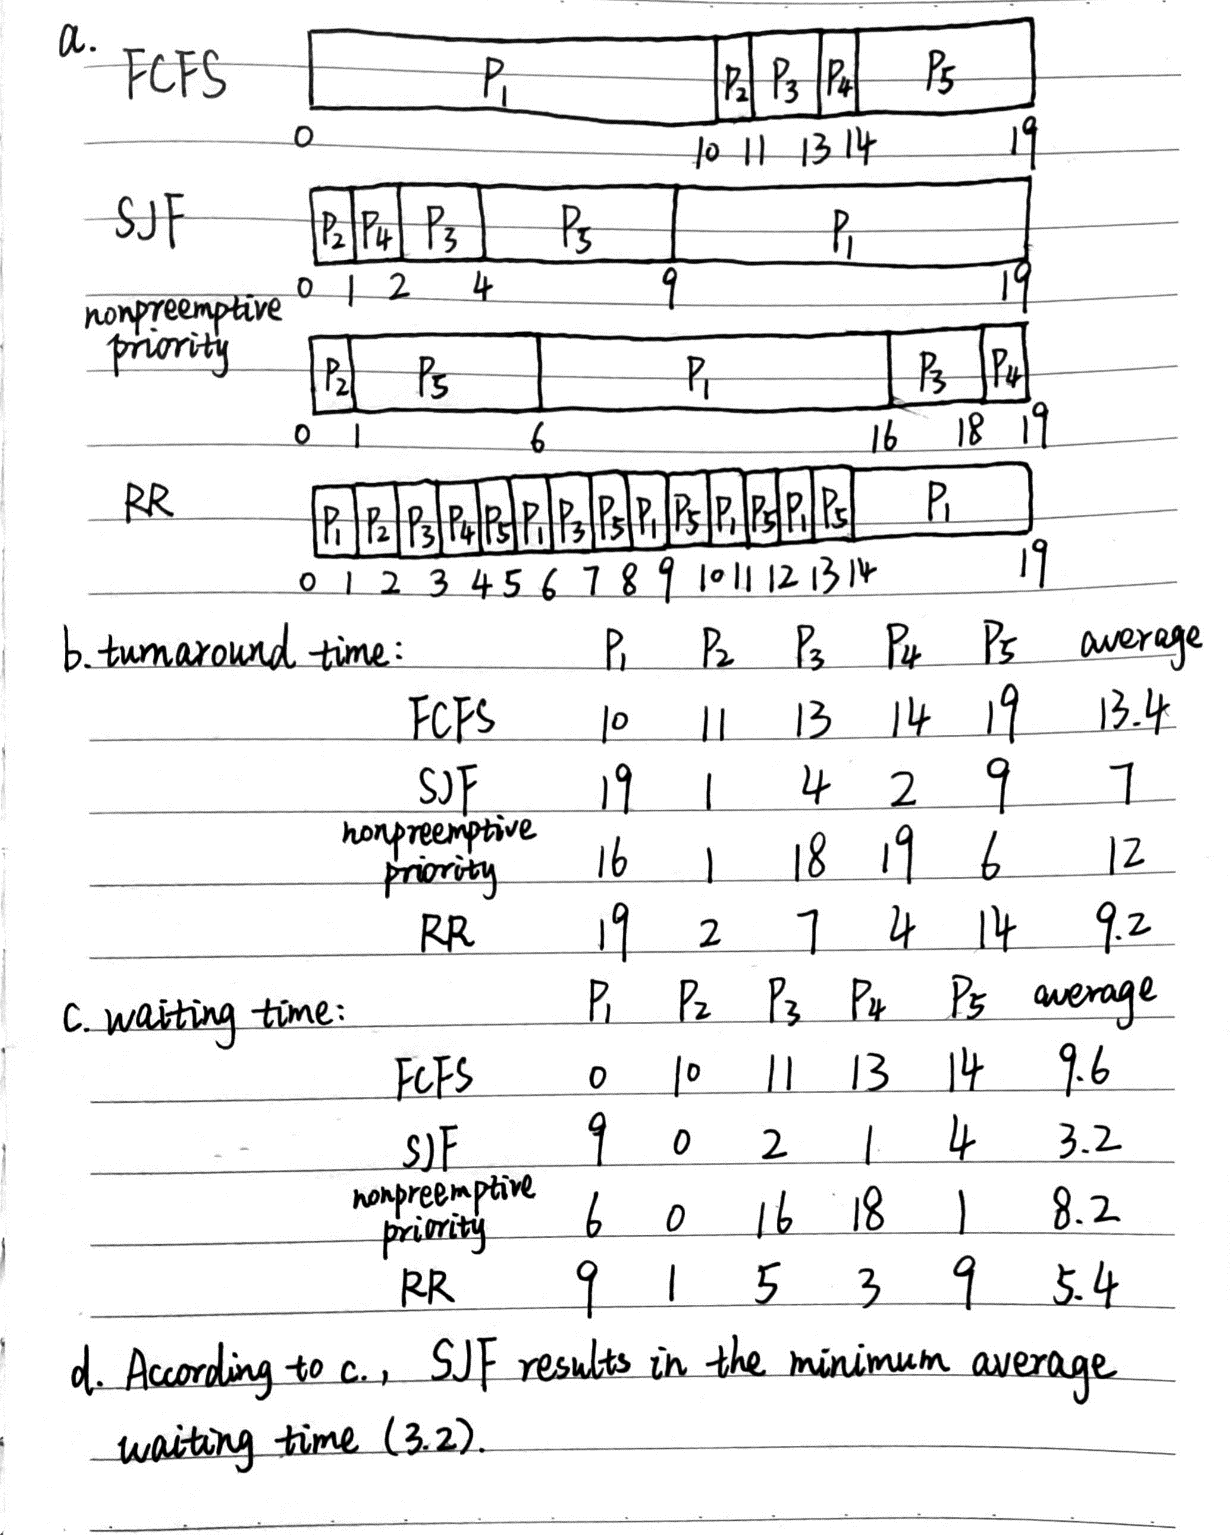 a.
FCFS P1 P2 P3 P4 P5
0 10 11 13 14 19
SJF P2 P4 P3 P5 P1
0 1 2 4 9 19
nonpreemptive
priority P2 P5 P1 P3 P4
0 1 6 16 18 19
RR P1 P2 P3 P4 P5 P1 P3 P5 P1 P5 P1 P5 P1 P5 P1
0 1 2 3 4 5 6 7 8 9 10 11 12 13 14 19
b. turnaround time: P1 P2 P3 P4 P5 average
FCFS 10 11 13 14 19 13.4
SJF 19 1 4 2 9 7
nonpreemptive
priority 16 1 18 19 6 12
RR 19 2 7 4 14 9.2
c. waiting time: P1 P2 P3 P4 P5 average
FCFS 0 10 11 13 14 9.6
SJF 9 0 2 1 4 3.2
nonpreemptive
priority 6 0 16 18 1 8.2
RR 9 1 5 3 9 5.4
d. According to c., SJF results in the minimum average
waiting time (3.2).